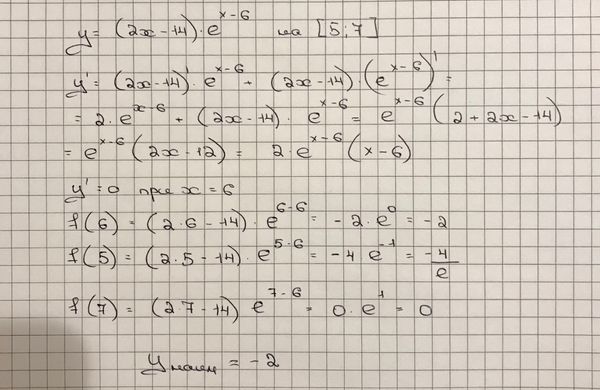 y = (2x-14)·e^(x-6) на [5;7]
y' = (2x-14)'·e^(x-6) + (2x-14)·(e^(x-6))' =
= 2·e^(x-6) + (2x-14)·e^(x-6) = e^(x-6)(2+2x-14)
= e^(x-6)(2x-12) = 2·e^(x-6)(x-6)
y'=0 при x=6
f(6) = (2·6-14)·e^(6-6) = -2·e^0 = -2
f(5) = (2·5-14)·e^(5-6) = -4 e^(-1) = -4/e
f(7) = (2·7-14) e^(7-6) = 0·e^1 = 0
y наим = -2